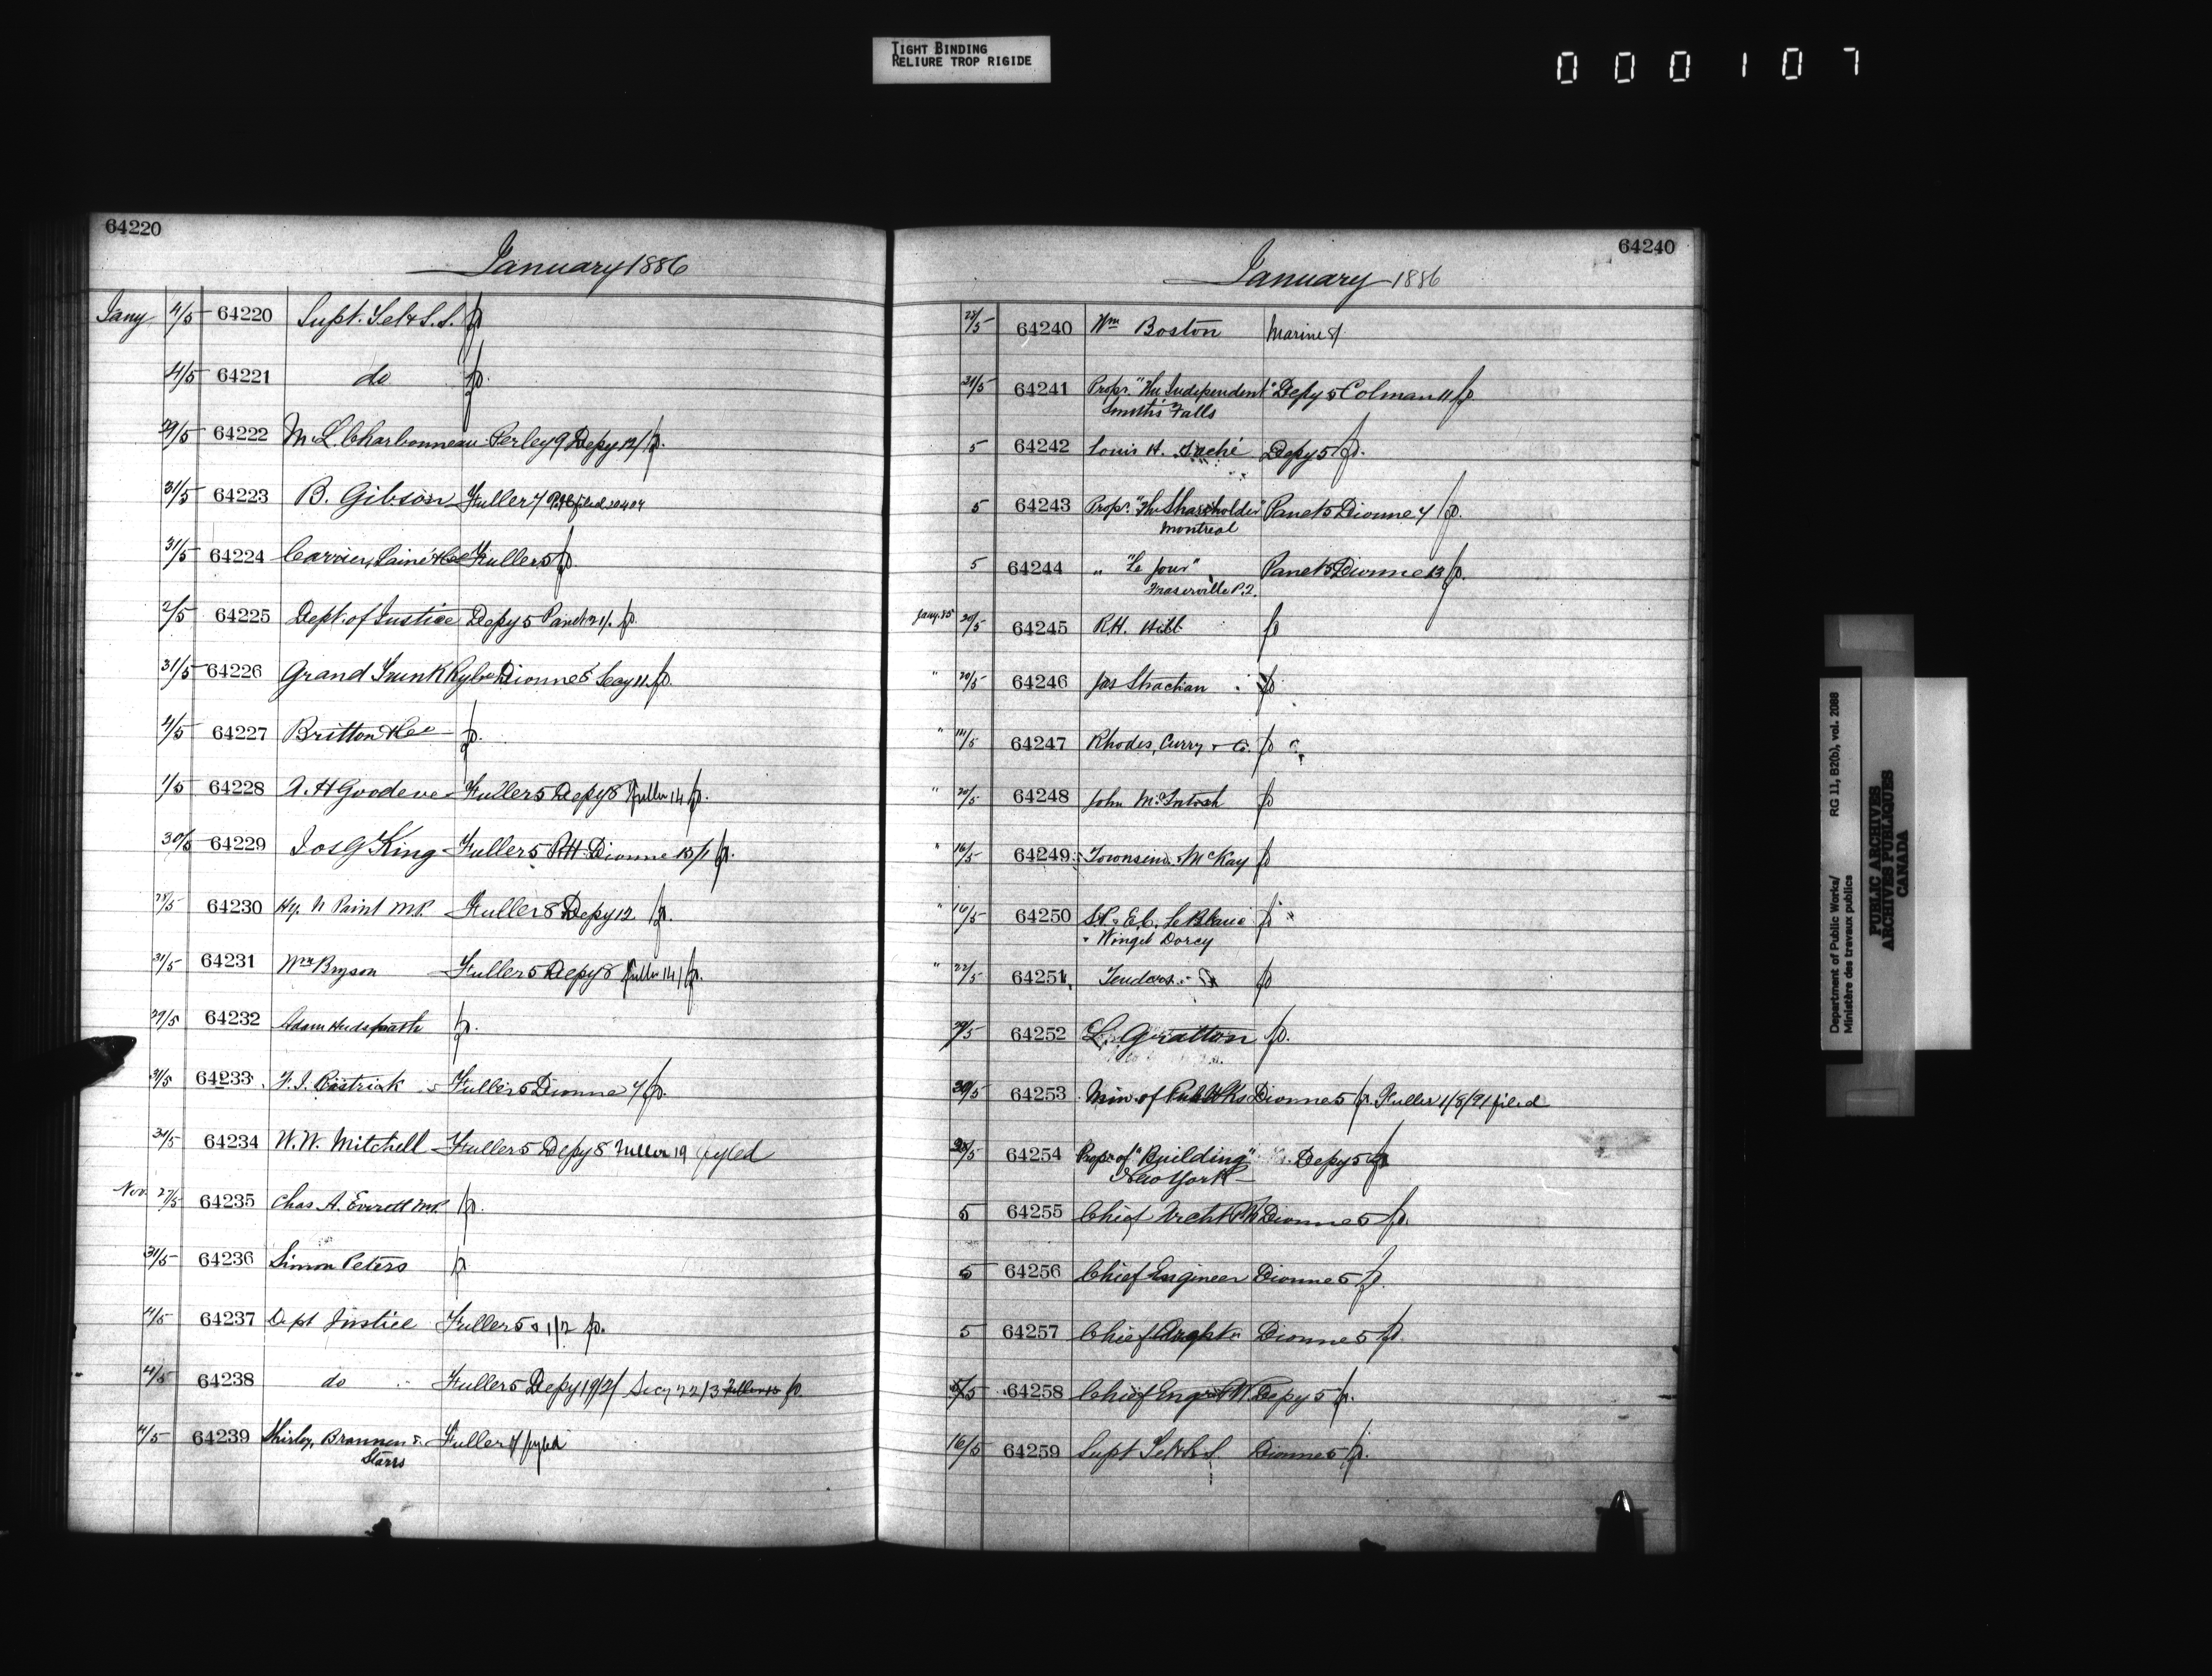 TIGHT BINDING
RELIURE TROP RIGIDE
000107
64220
January 1886
Jany 4/5 64220 Supt. Tel & S.S. fp
4/5 64221 do fp.
29/5 64222 M. L Charbonneau Perley 9 Depy 12/ fp.
31/5 64223 B. Gibson Fuller 7
31/5 64224 Carrier, Lainé & Co Fuller 5 fp.
2/5 64225 Dept. of Justice Depy 5 fp.
31/5 64226 Grand Trunk Ry Co Dionne 5 Secy 11. fp.
4/5 64227 Britton & Co fp.
1/5 64228 A. H Goodeve Fuller 5 Depy 8 Fuller 14 fp.
30/5 64229 Jos G King Fuller 5 Dionne 13/1 fp.
28/5 64230 Hy. N Paint M.P. Fuller 8 Depy 12 fp.
31/5 64231 Wm Bryson Fuller 5 Depy 8 Fuller 14/ fp.
29/5 64232 Adam Hudspeth fp.
31/5 64233 Fuller 5 Dionne 7 fp.
31/5 64234 W. W. Mitchell Fuller 5 Depy 8 Fuller 19 fyled
Nov. 27/5 64235 Chas A. Everett M.P. fp.
31/5 64236 Simon Peters fp
4/5 64237 Dept Justice Fuller 5 1/2 fp.
4/5 64238 do Fuller 5 Depy 19/2/ Secy 22/3 fp.
4/5 64239 Shirley, Brannen & Fuller fyled
Starrs
64240
January 1886
28/5 64240 Wm Boston Marine 8/
31/5 64241 Propr. "The Independent" Depy 5 Colman 11 fp.
Smith's Falls
5 64242 Louis H. Taché Depy 5 fp.
5 64243 Propr. "The Shareholder" Panet 5 Dionne 7 fp.
Montreal
5 64244 " "Le Jour" Panet 5 Dionne 13 fp.
Fraserville P.Q.
Jany. 85 20/5 64245 R.H. Hill fp
" 20/5 64246 Jas Strachan fp
" 64247 Rhodes, Curry & Co. fp
" 20/5 64248 John McIntosh fp
" 16/5 64249 Townsend & McKay fp
" 16/5 64250 S.P. & E.C. LeBlanc fp
& Winget Dorey
" 22/5 64251 Tenders fp
29/5 64252 L. Gratton fp.
30/5 64253 Min. of Pub Wks Dionne 5 fp. Fuller 1/8/91 filed
28/5 64254 Propr of "Building" Depy 5 fp
New York
5 64255 Chief Archt PW Dionne 5 fp.
5 64256 Chief Engineer Dionne 5 fp.
5 64257 Chief Archt Dionne 5 fp
5/5 64258 Chief Engr P.W. Depy 5 fp.
16/5 64259 Supt Tel & S.S. Dionne 5 fp.
Department of Public Works/ RG 11, B2(b), vol. 2088
Ministère des travaux publics
PUBLIC ARCHIVES
ARCHIVES PUBLIQUES
CANADA